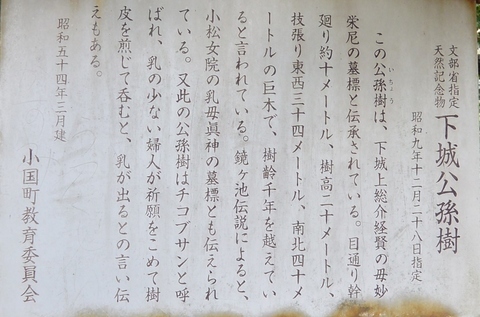 文部省指定
天然記念物
下城公孫樹
いちょう
昭和九年十二月二十八日指定
この公孫樹は、下城上総介経賢の母妙
栄尼の墓標と伝承されている。目通り幹
廻り約十メートル、樹高二十メートル、
技張り東西三十四メートル、南北四十メ
ートルの巨木で、樹齢千年を越えてい
ると言われている。鏡ヶ池伝説によると、
小松女院の乳母眞神の墓標とも伝えられ
ている。又此の公孫樹はチコブサンと呼
ばれ、乳の少ない婦人が祈願をこめて樹
皮を煎じて呑むと、乳が出るとの言い伝
えもある。
昭和五十四年三月建
小国町教育委員会